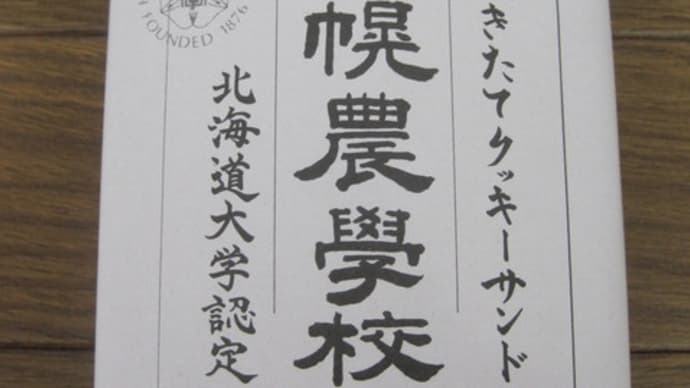 きたてクッキーサンド
幌農學校
北海道大学認定
FOUNDED 1876